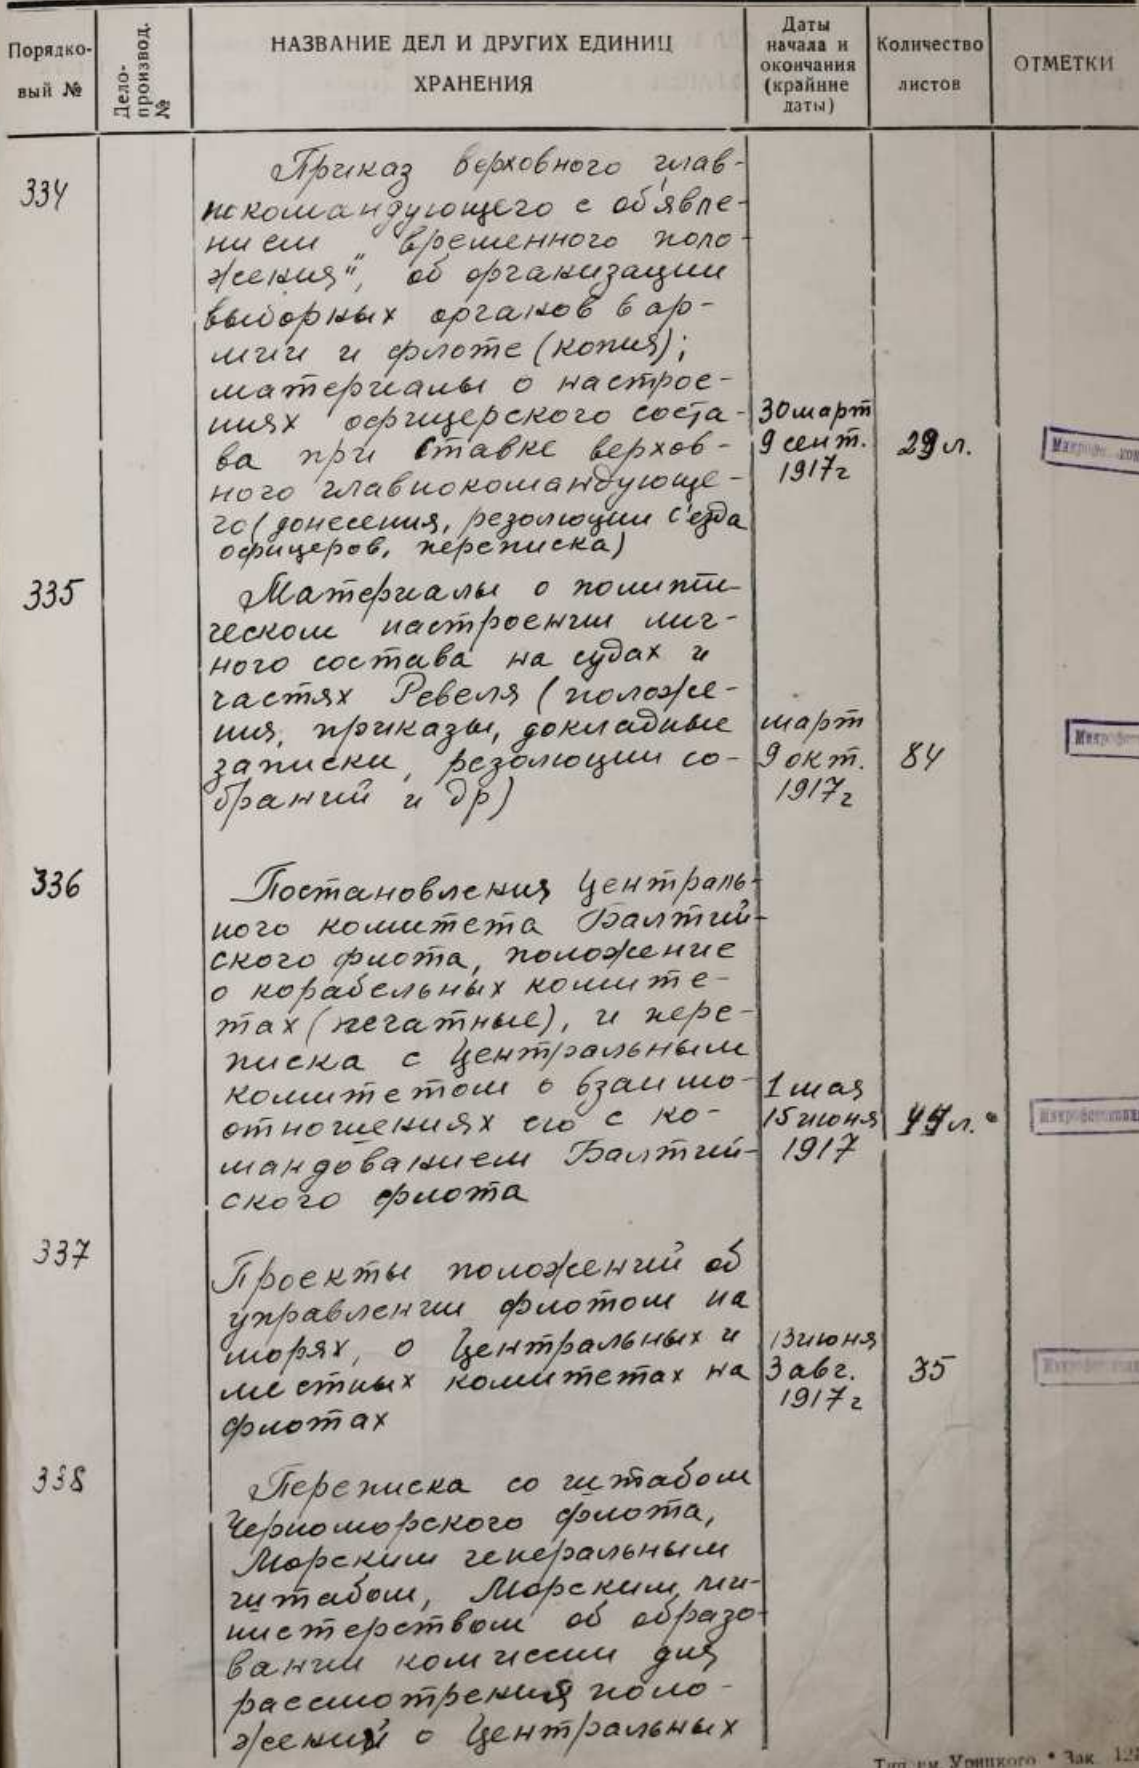 Порядко-
вый №
Дело-
производ.
№
НАЗВАНИЕ ДЕЛ И ДРУГИХ ЕДИНИЦ
ХРАНЕНИЯ
Даты
начала и
окончания
(крайние
даты)
Количество
листов
ОТМЕТКИ
334
Приказ верховного глав-
нокомандующего с об'явле-
нием „временного поло-
жения", об организации
выборных органов в ар-
мии и флоте (копия);
материалы о настрое-
ниях офицерского соста-
ва при Ставке верхов-
ного главнокомандующе-
го (донесения, резолюции с'езда
офицеров, переписка)
30 март
9 сент.
1917г
29 л.
335
Материалы о полити-
ческом настроении лич-
ного состава на судах и
частях Ревеля (положе-
ния, приказы, докладные
записки, резолюции со-
браний и др)
март
9 окт.
1917г
84
336
Постановления Централь-
ного комитета Балтий-
ского флота, положение
о корабельных комите-
тах (печатные), и пере-
писка с Центральным
комитетом о взаимо-
отношениях его с ко-
мандованием Балтий-
ского флота
1 мая
15 июня
1917
337
Проекты положений об
управлении флотом на
морях, о Центральных и
местных комитетах на
флотах
13 июня
3 авг.
1917г
35
338
Переписка со штабом
Черноморского флота,
Морским генеральным
штабом, Морским ми-
нистерством об образо-
вании комиссии для
рассмотрения поло-
жений о Центральных
Тип. им. Урицкого * Зак. 121